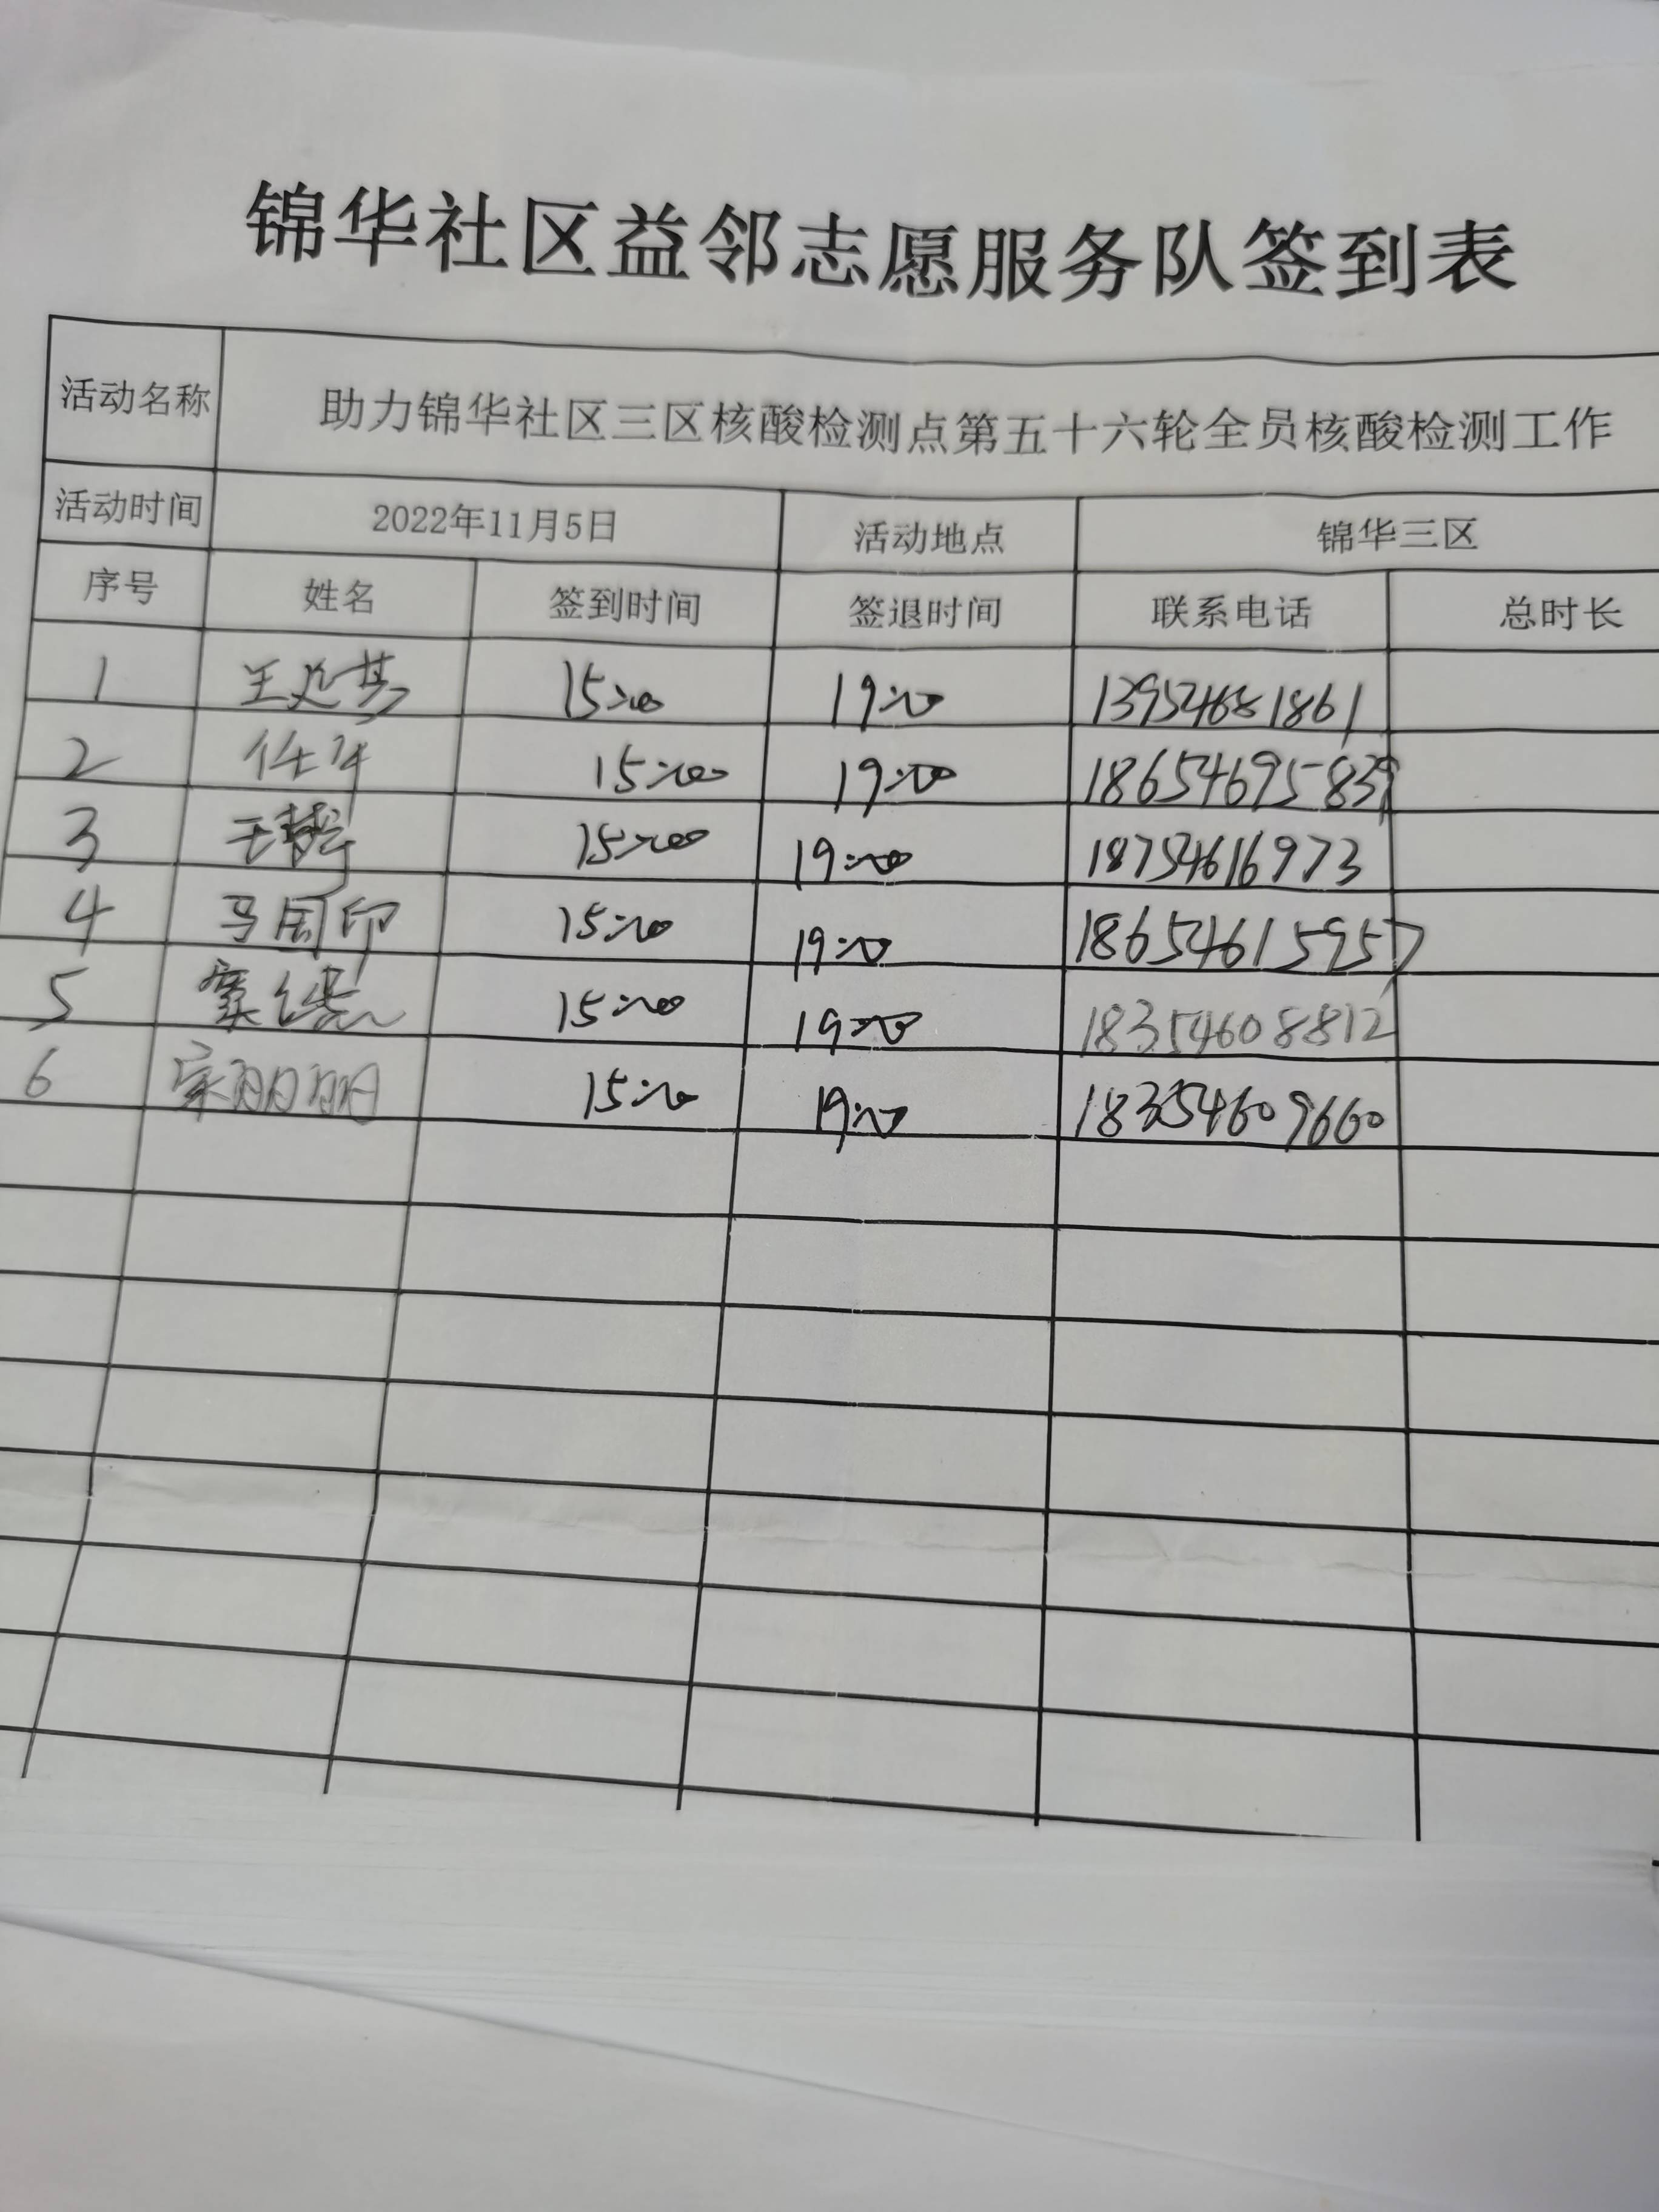 锦华社区益邻志愿服务队签到表
活动名称 助力锦华社区三区核酸检测点第五十六轮全员核酸检测工作
活动时间 2022年11月5日 活动地点 锦华三区
序号 姓名 签到时间 签退时间 联系电话 总时长
1 15:00 19:00 13954681861
2 15:00 19:00 18654695839
3 15:00 19:00 18754616973
4 马国印 15:00 19:00 18654615957
5 15:00 19:00 18354608812
6 宋丽丽 15:00 19:00 18354609660